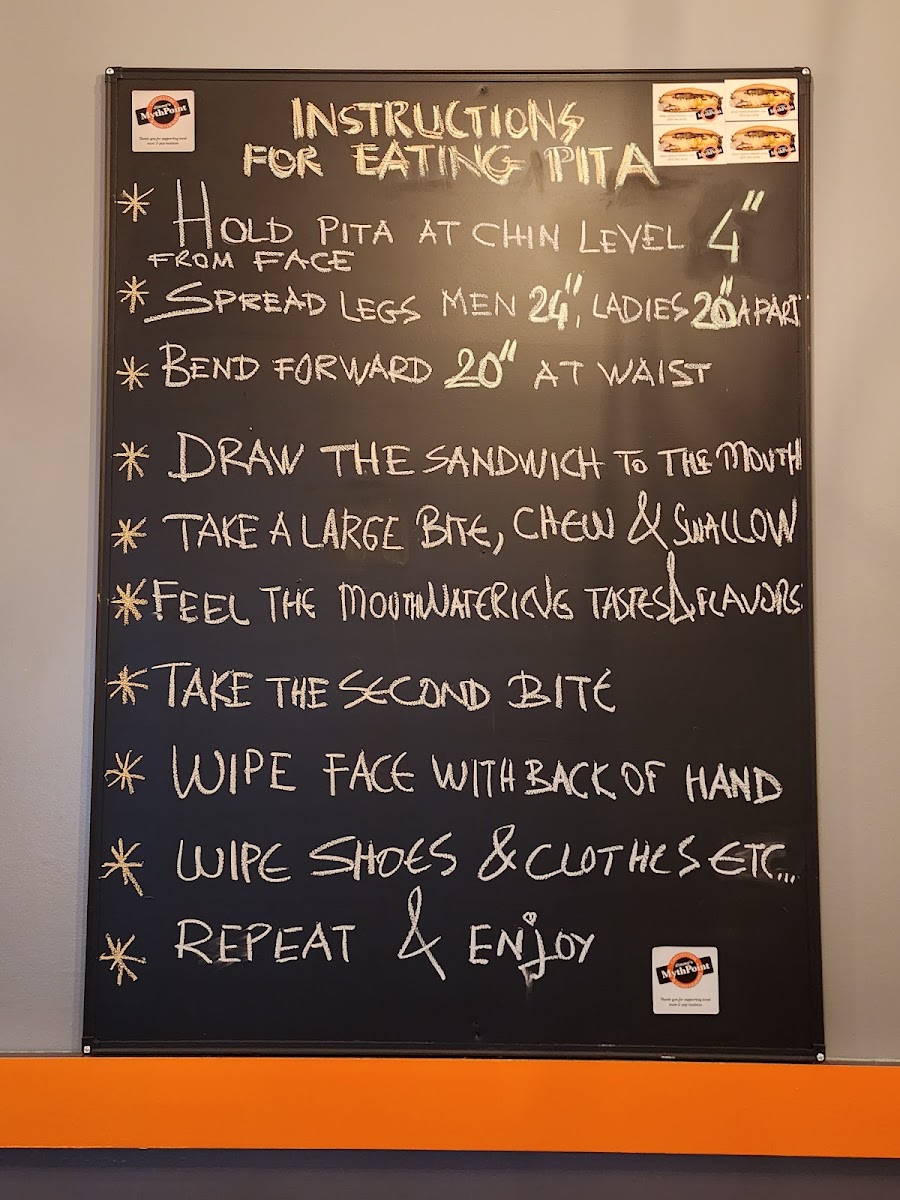 MythPoint
Thank you for supporting local
mom & pop business
INSTRUCTIONS
FOR EATING PITA
* HOLD PITA AT CHIN LEVEL 4"
FROM FACE
* SPREAD LEGS MEN 24", LADIES 20" APART
* BEND FORWARD 20" AT WAIST
* DRAW THE SANDWICH TO THE MOUTH
* TAKE A LARGE BITE, CHEW & SWALLOW
* FEEL THE MOUTHWATERING TASTES & FLAVORS
* TAKE THE SECOND BITE
* WIPE FACE WITH BACK OF HAND
* WIPE SHOES & CLOTHES ETC...
* REPEAT & ENJOY
MythPoint
Thank you for supporting local